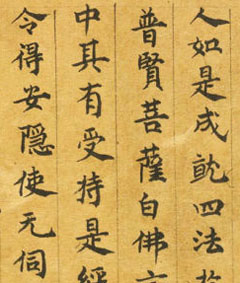 人如是成就四法於
普賢菩薩白佛言
中其有受持是經
令得安隠使无伺